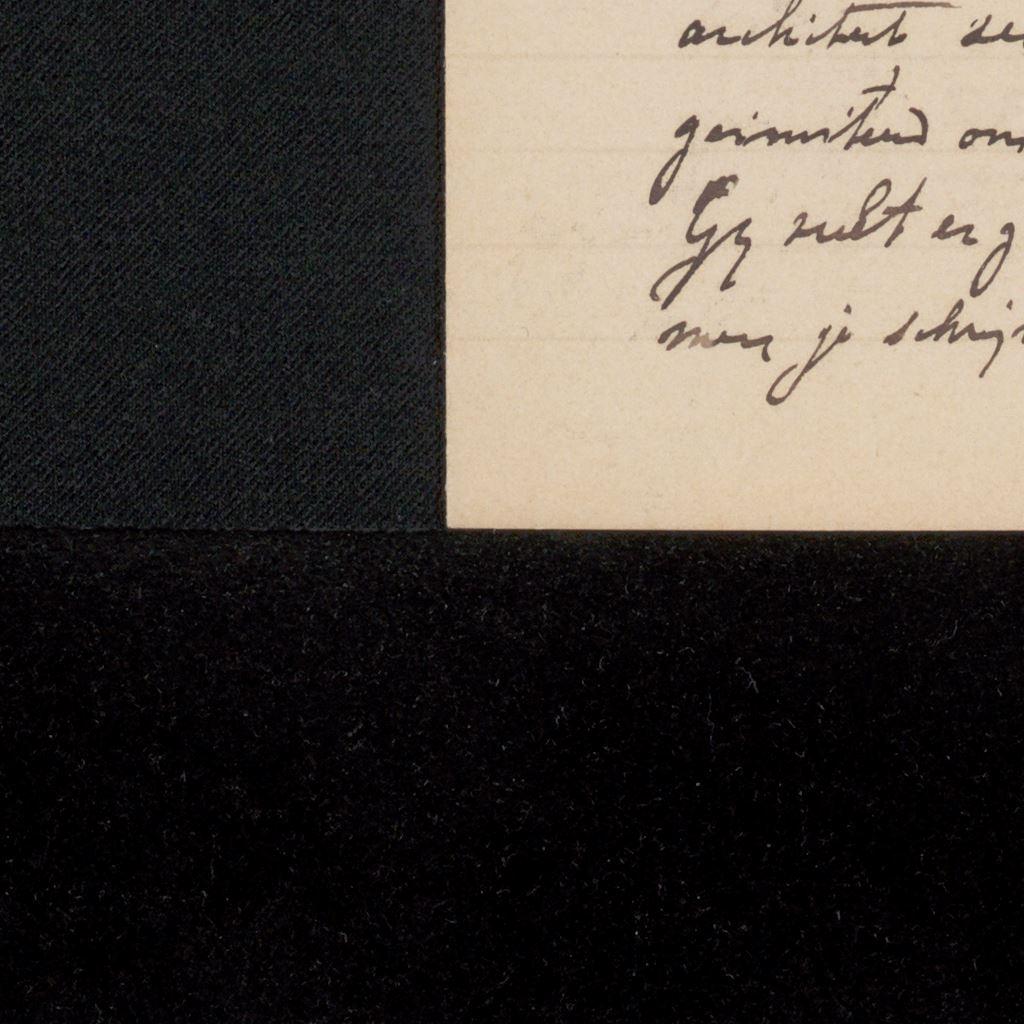 architect
geinviteerd om
Gy zult er g
men je schrij